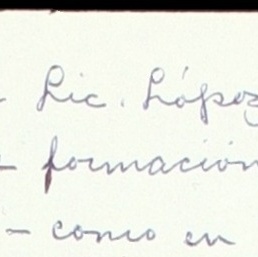 Lic. López
formación
- como en